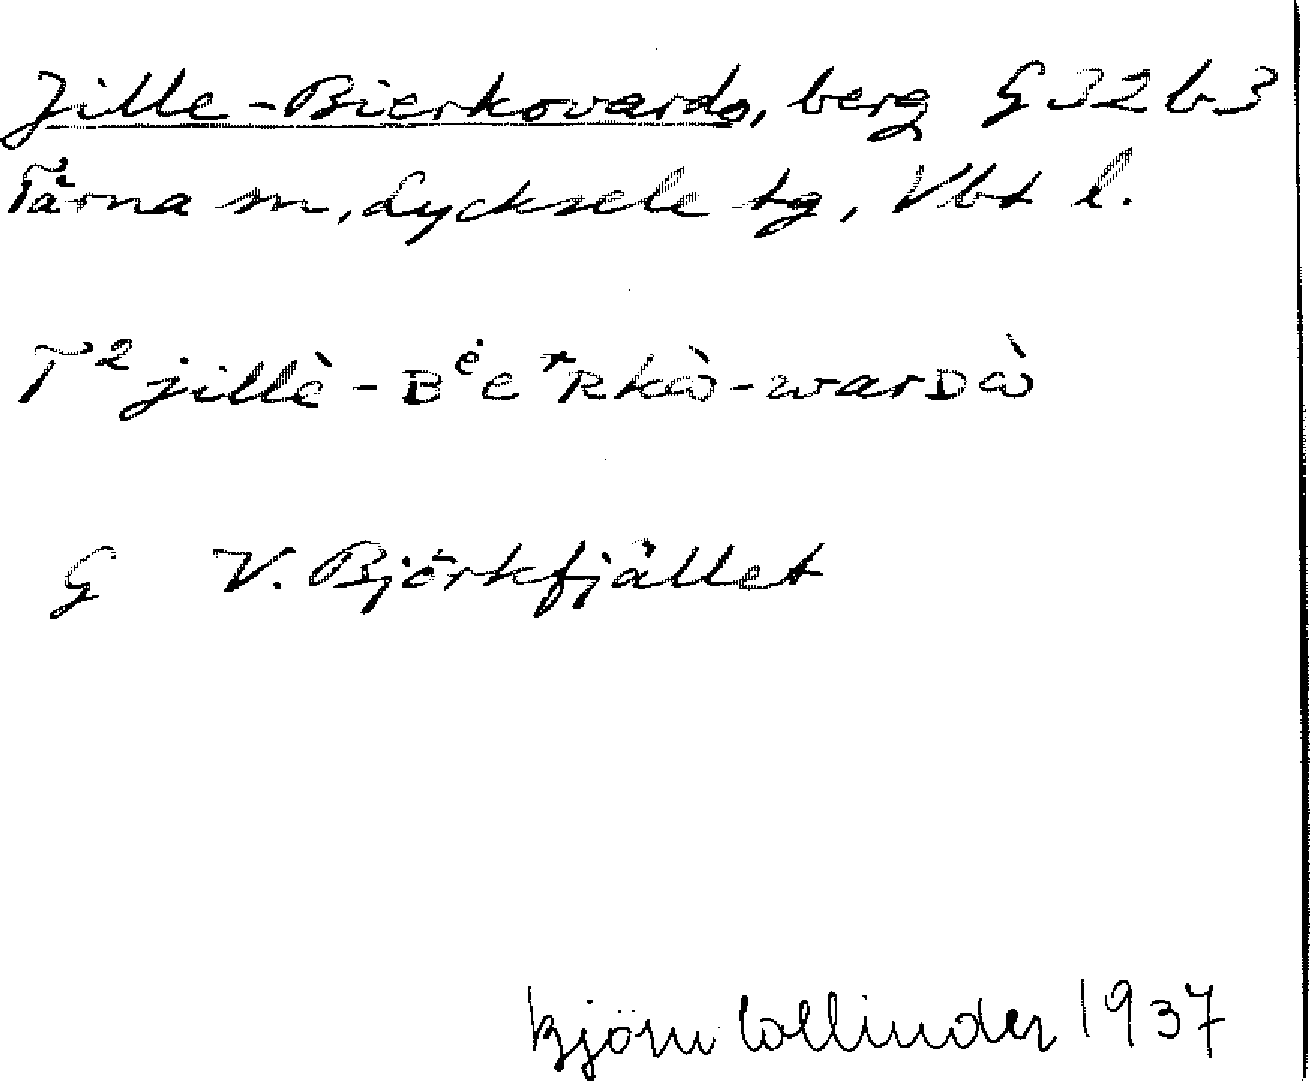 Jille-Bierkovardo, berg G 32 b 3
Tärna sn, Lycksele tg, Vbt l.
T² jillè-Bᵉ̇eʳRkὼ-warDὼ
G V. Björkfjället
Björn Collinder 1937